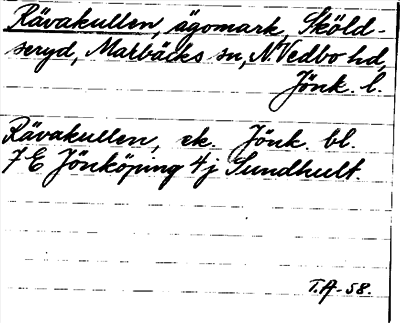 Rävakullen, ägomark, Sköld-
seryd, Marbäcks sn, N. Vedbo hd,
Jönk. l.
Rävakullen, ek. Jönk. bl.
7 E Jönköping 4j Sundhult.
T.A-58.